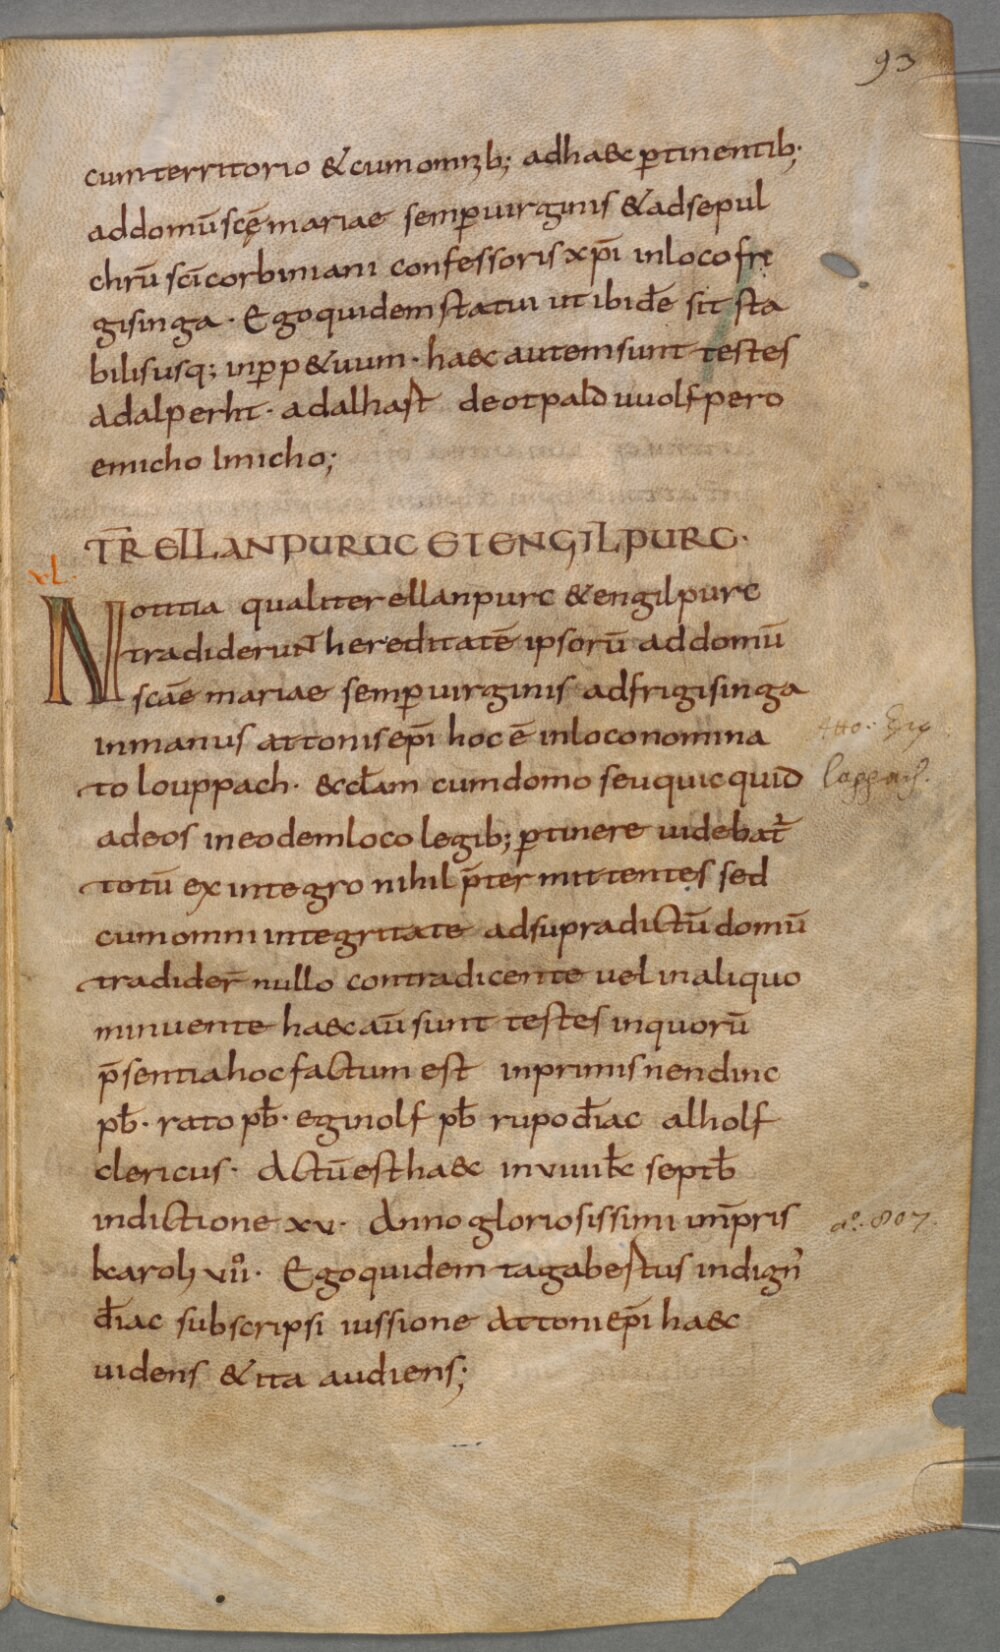 93
cum territorio & cum omnib; ad haec ptinentib;
ad domū scę mariae semp uirginis & ad sepul
chrū scī corbiniani confessoris xpī in loco fri
gisinga · Ego quidem statui ut ibidē sit sta
bilis usq; in pp&uum · haec autem sunt testes
Adalperht · adalhast deotpald uuolfpero
emicho Imicho;
TR̄ ELLANPURUC ET ENGILPURC ·
xl.
Notitia qualiter ellanpurc & engilpurc
tradiderun̄ hereditatē ipsorū ad domū
scāe mariae semp uirginis ad frigisinga
in manus attonis epī hoc ē in loco nomina
to louppach · &ccl̄am cum domo seu quicquid
ad eos in eodem loco legib; ptinere uidebat̄
totū ex integro nihil p̄termittentes sed
cum omni integritate ad supradictū domū
tradider̄ nullo contradicente uel in aliquo
minuente haec aū sunt testes in quorū
p̄sentia hoc factum est inprimis nendinc
pb̄ · rato pb̄ · eginolf pb̄ rupo diac̄ alholf
clericus · Actū est haec in viiii kł septb̄
indictione xv · Anno gloriosissimi imp̄ris
karoli vii · Ego quidem tagabertus indign'
diac̄ subscripsi iussione attoni epī haec
uidens & ita audiens;
Atto. Epis
Lappach.
aº. 807.